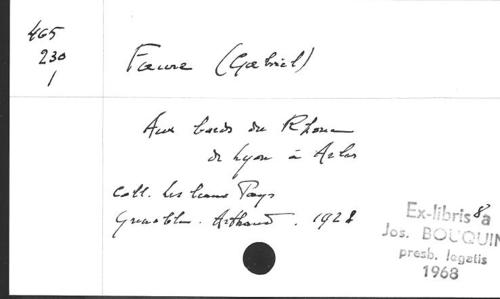 465
230
1
Faure (Gabriel)
Aux bords du Rhône
de Lyon à Arles
Coll. Les beaux Pays
Grenoble. Arthaud. 1928
8a
Ex-libris
Jos. BOUQUIN
presb. legatis
1968